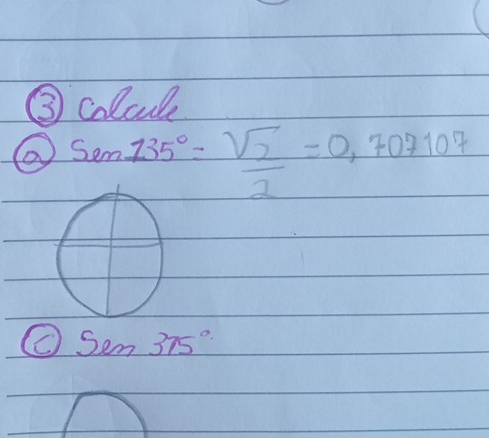 ③ Calcule
ⓐ Sen 135° = √2/2 = 0,707107
ⓒ Sen 315°